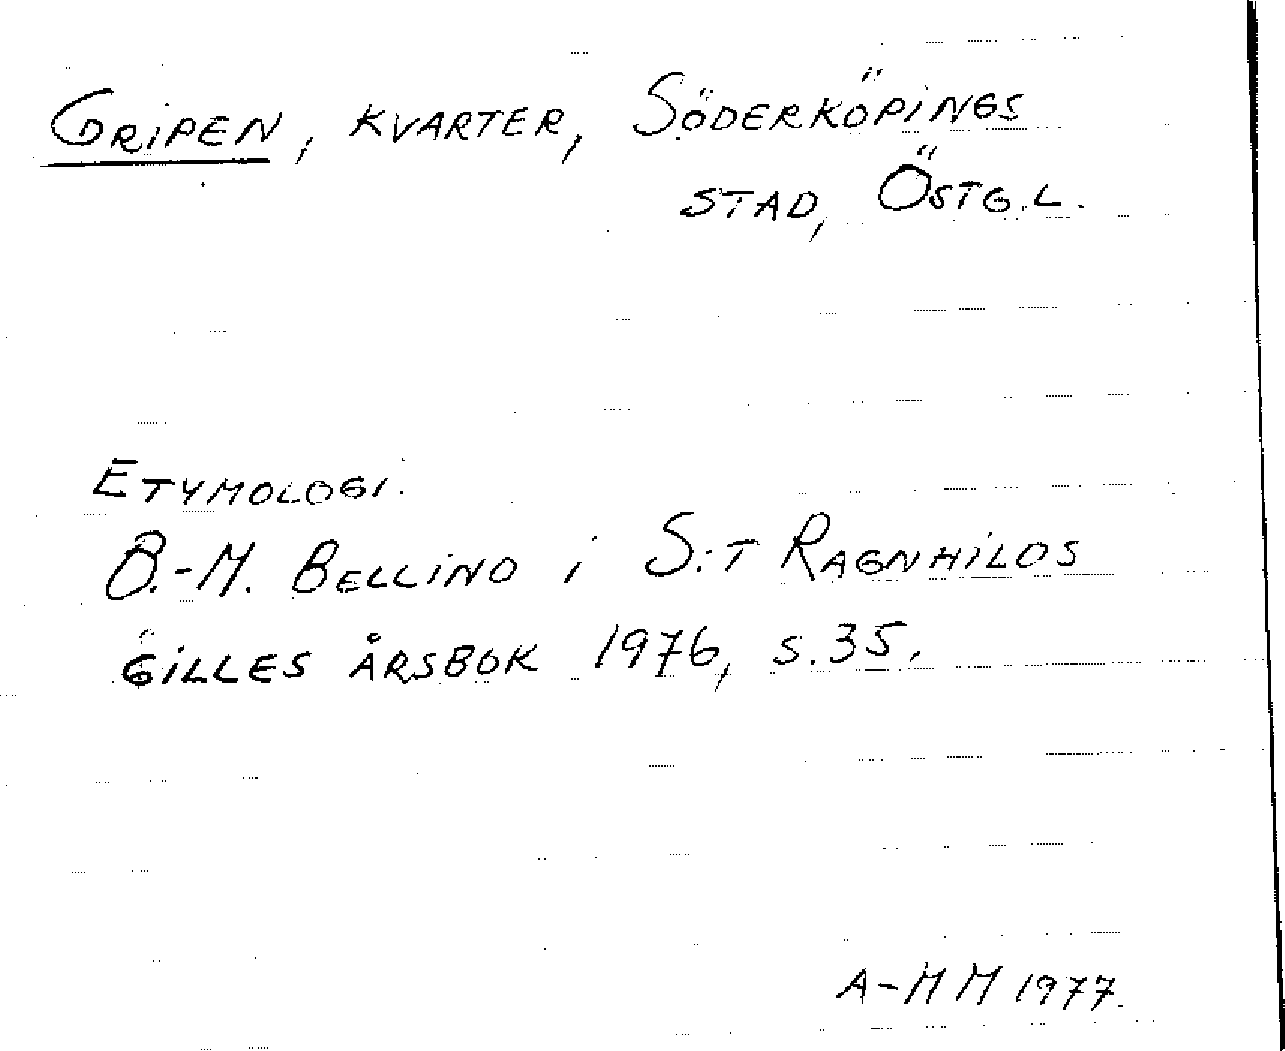 GRIPEN, KVARTER, SÖDERKÖPINGS
STAD, ÖSTG.L.
ETYMOLOGI.
B.-M. BELLIND i S:T RAGNHILDS
GILLES ÅRSBOK 1976, s.35.
A-MM 1977.